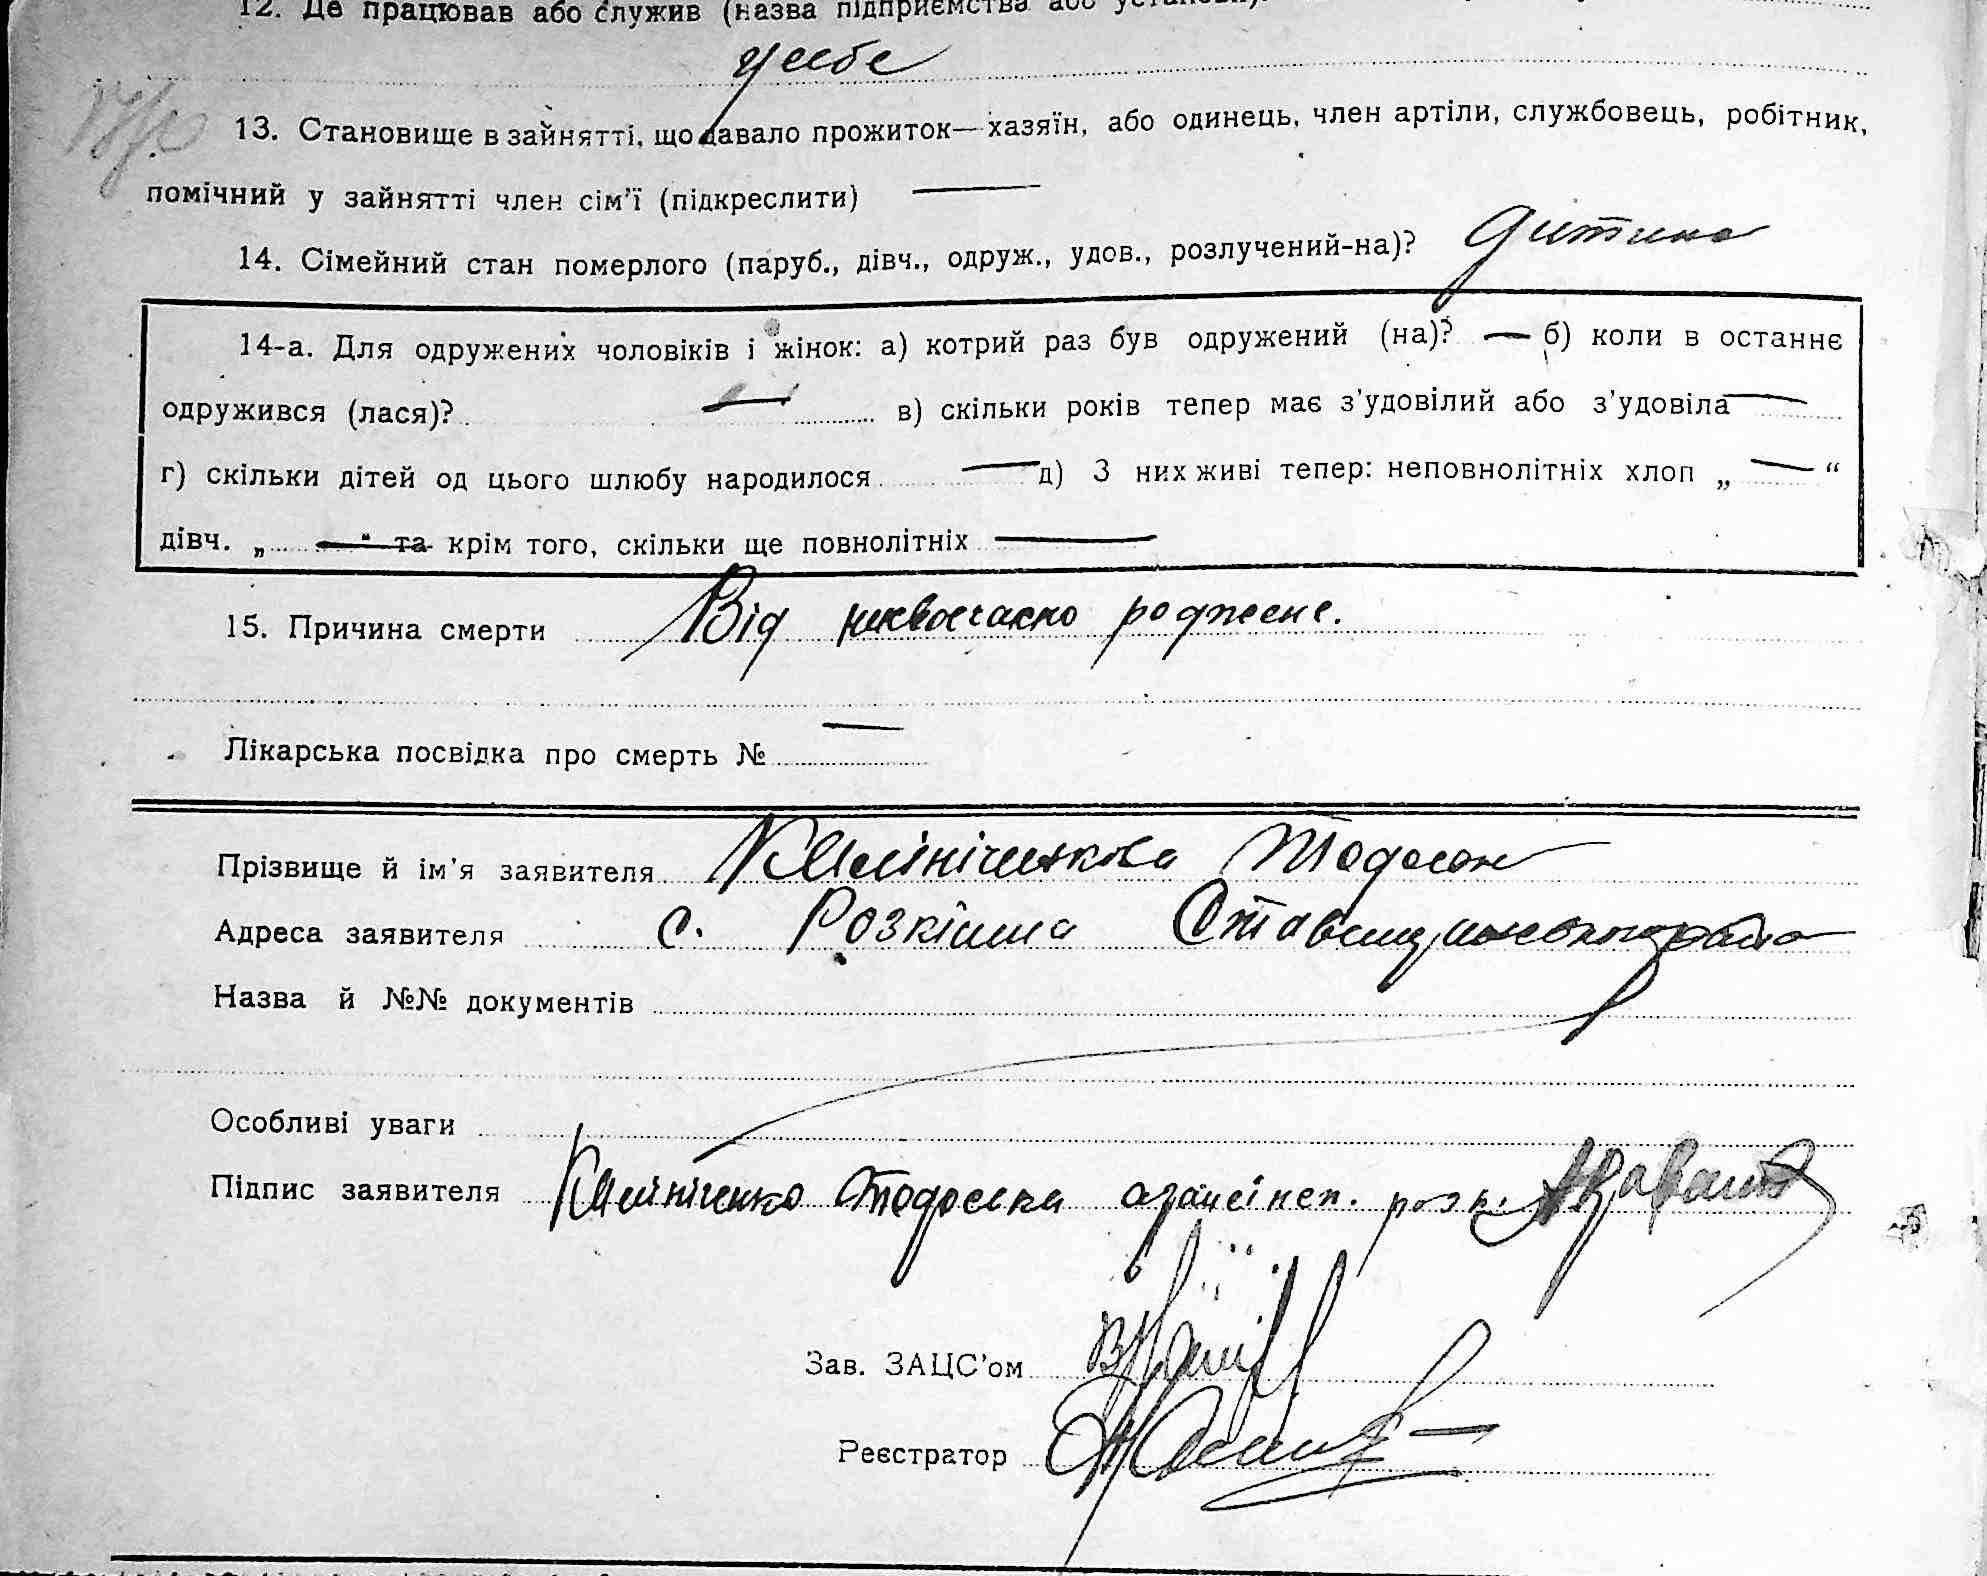 12. Де працював або служив (назва підприємства або установи).
у себе
13. Становище в зайнятті, що давало прожиток—хазяїн, або одинець, член артіли, службовець, робітник,
помічний у зайнятті член сім'ї (підкреслити) —
14. Сімейний стан померлого (паруб., дівч., одруж., удов., розлучений-на)? Дитина
14-а. Для одружених чоловіків і жінок: а) котрий раз був одружений (на)? — б) коли в останнє
одружився (лася)? — в) скільки років тепер має з'удовілий або з'удовіла —
г) скільки дітей од цього шлюбу народилося — д) З них живі тепер: неповнолітніх хлоп „ — “
дівч. „ — “ та крім того, скільки ще повнолітніх —
15. Причина смерти Від невоєчасно роджене.
Лікарська посвідка про смерть № —
Прізвище й ім'я заявителя Тодосон
Адреса заявителя с. Розкішна
Назва й №№ документів
Особливі уваги
Підпис заявителя розп.
Зав. ЗАЦС'ом
Реєстратор